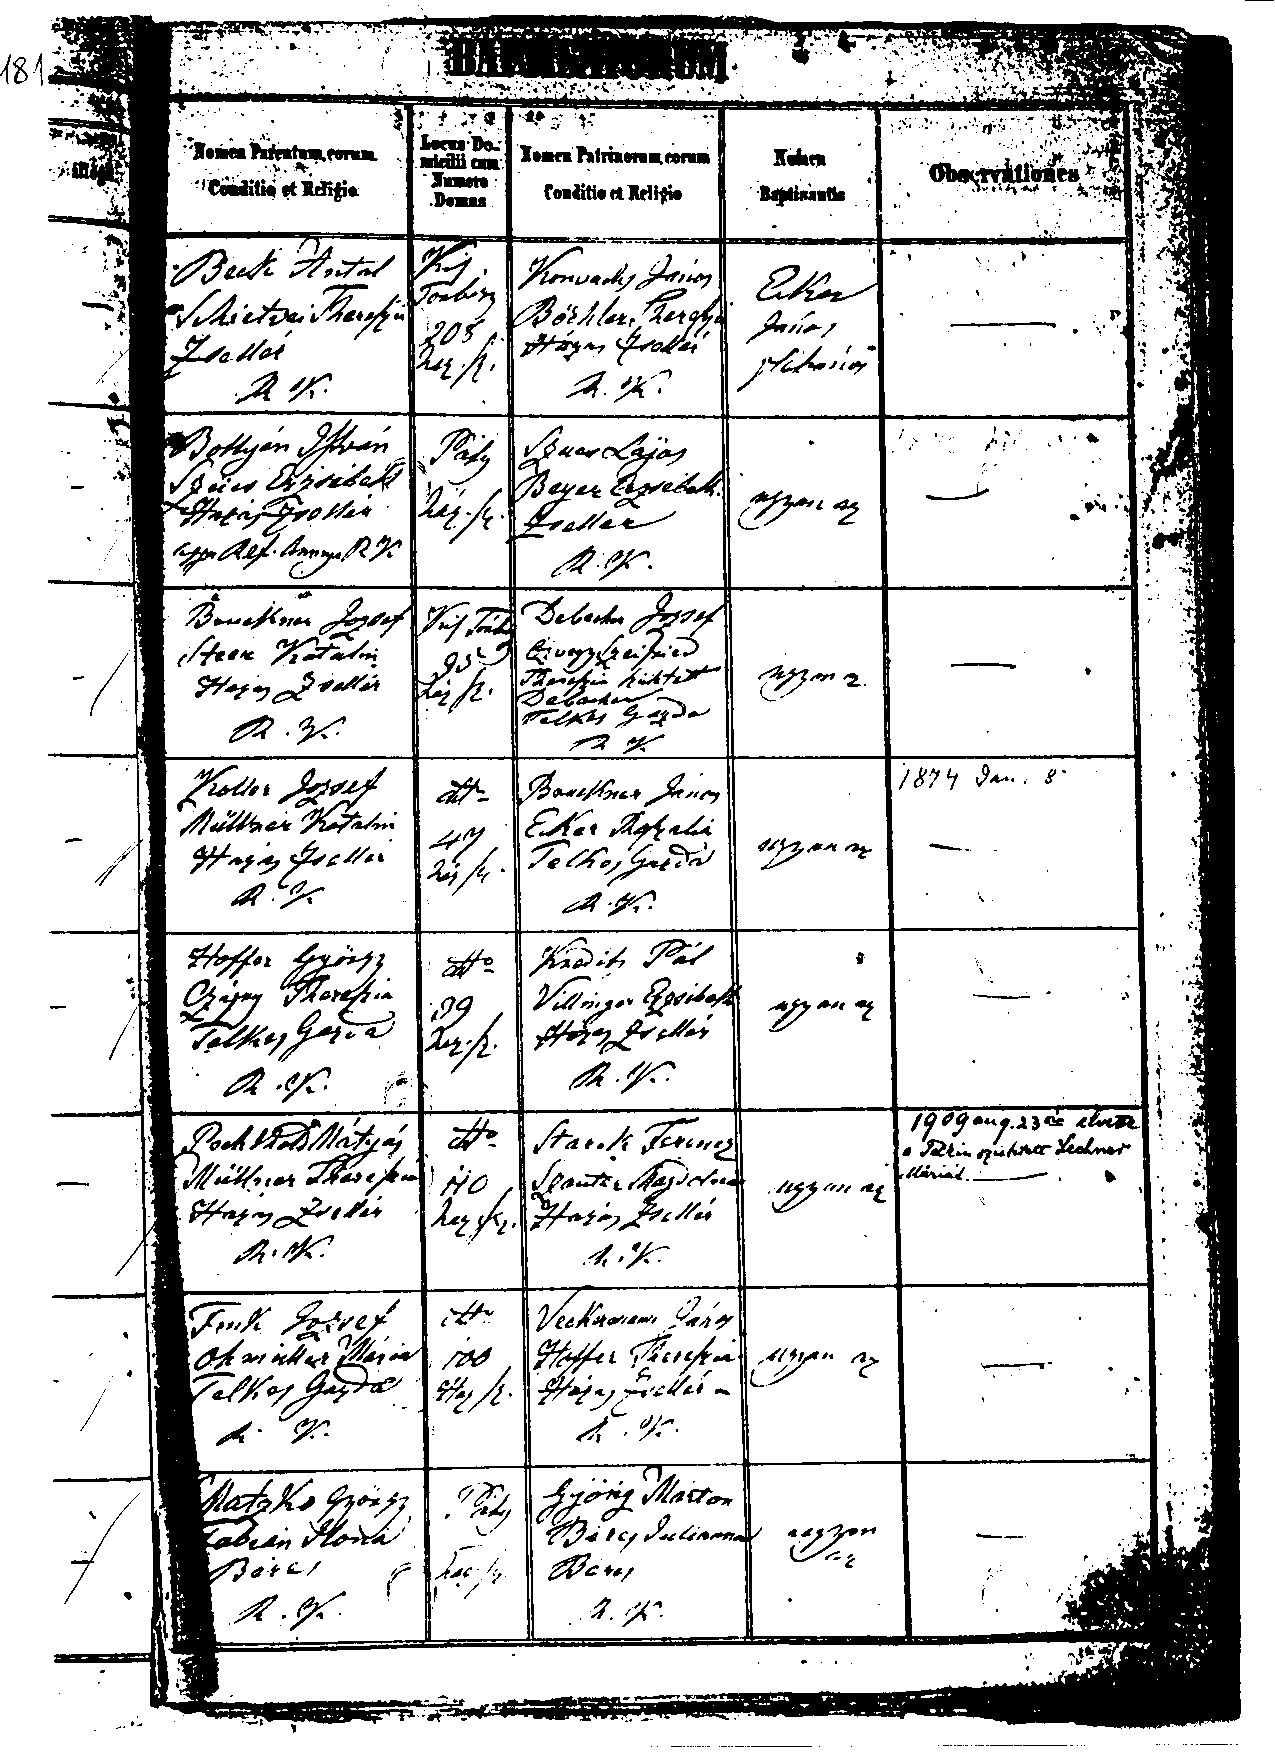 181
BAPTISATORUM.
Nomen Parentum, eorum
Conditio et Religio
Locus Do-
micilii cum
Numero
Domus
Nomen Patrinorum, eorum
Conditio et Religio
Nomen
Baptisantis
Observationes
Beck Antal
Theresia
Zsellér
R. K.
Kis
Torbágy
208
Ház. sz.
János
Böchler Theresia
Házas Zsellér
R. K.
Eker
János
plébános
Bottyán István
Szücs Erzsébet
Házas Zsellér
apja Ref. Annya R K.
Páty
Ház. sz.
Szücs Lajos
Beyer Erzsébet
Zsellér
R. K.
ugyan az
Bruckner József
Katalin
Házas Zsellér
R. K.
Kis
Ház sz.
József
Theresia
Telkes Gazda
R K
ugyan az
Koller József
Müllner Katalin
Házas Zsellér
R. K.
dtto
47
Ház sz.
Bruckner János
Eker Rozalia
Telkes Gazda
R. K.
ugyan az
1874 Jan. 8
Hoffer György
Theresia
Telkes Gazda
R. K.
dtto
39
Ház. sz.
Pál
Villinger Erzsébet
Házas Zsellér
R. K.
ugyan az
Mátyás
Müllner Theresia
Házas Zsellér
R. K.
dtto
110
Ház. sz.
Starck Ferencz
Magdolna
Házas Zsellér
R. K.
ugyan az
1909 aug. 23 án elvette
a született Lechner
Máriát.
Fink József
Mária
Telkes Gazda
R. K.
dtto
100
Ház sz.
János
Hoffer Theresia
Házas Zsellér
R. K.
ugyan az
Matzko György
Fabian Ilona
Béres
R. K.
Páty
Ház. sz.
György Márton
Béres Julianna
Béres
R. K.
ugyan
az